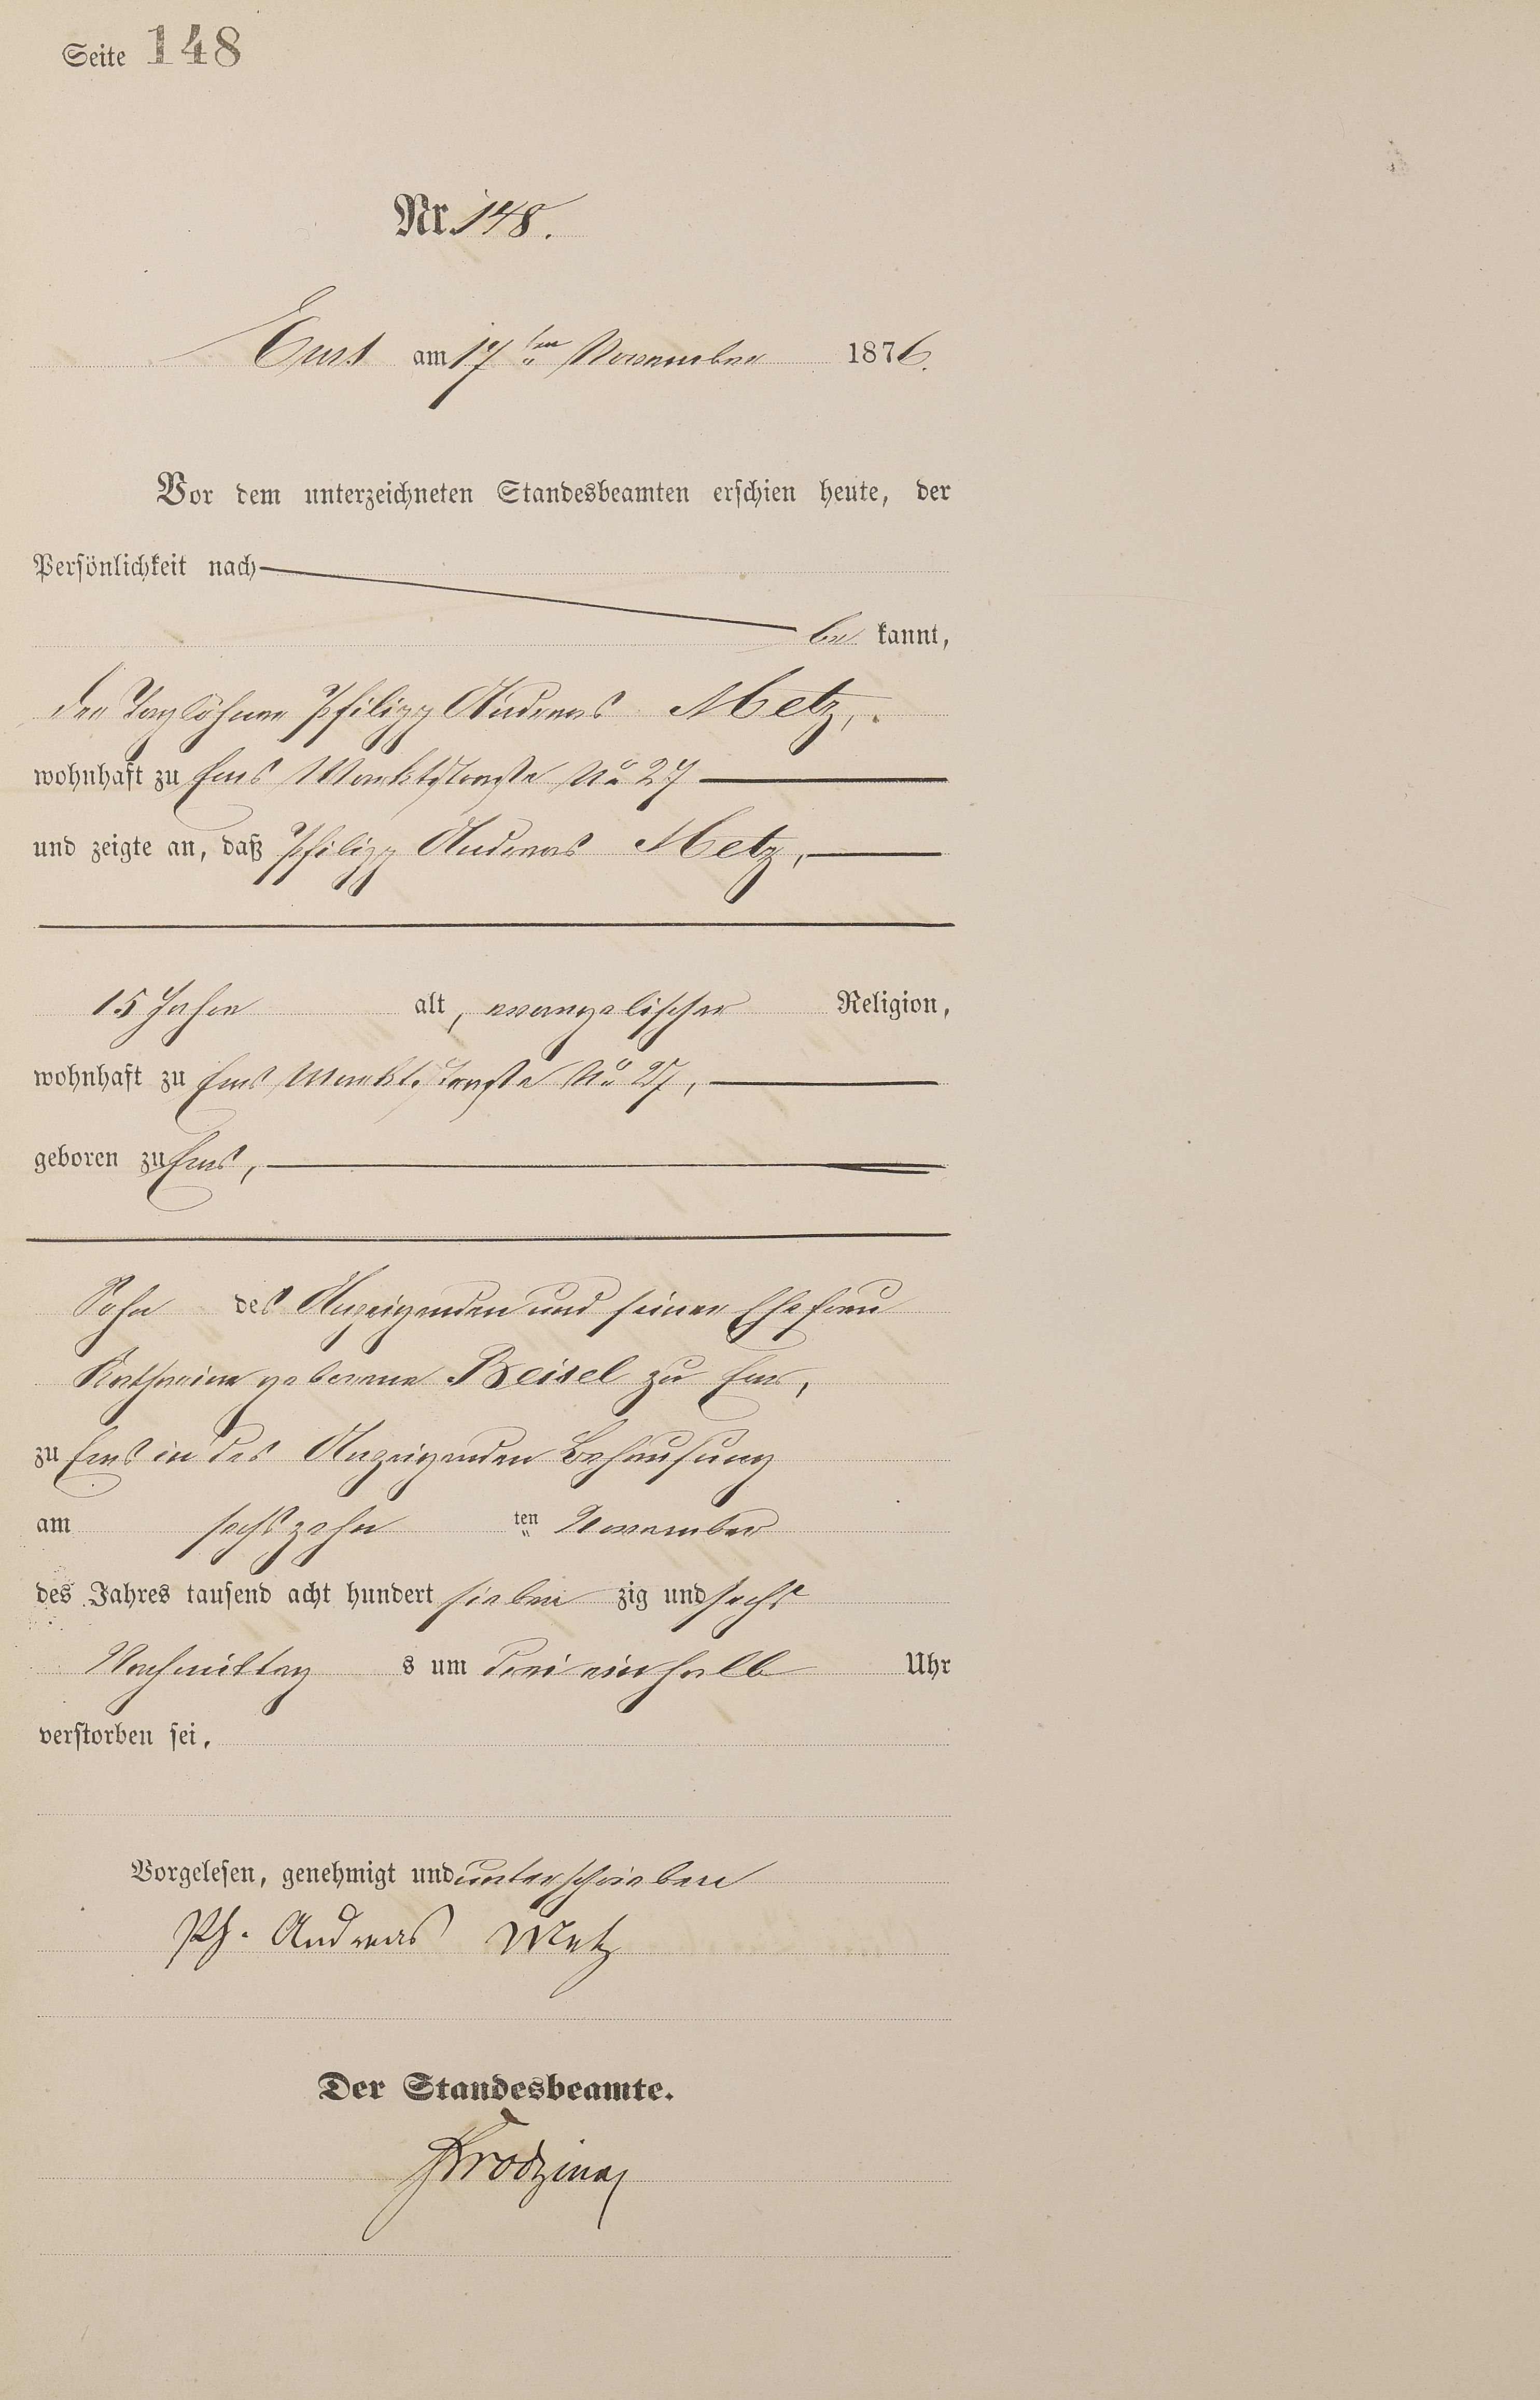 Seite 148
Nr. 148.
Ems am 17ten November 1876.
Vor dem unterzeichneten Standesbeamten erschien heute, der
Persönlichkeit nach
be kannt,
der Taglöhner Philipp Andreas Metz,
wohnhaft zu Ems Marktstraße No 27
und zeigte an, daß Philipp Andreas Metz,
15 Jahre alt, evangelischer Religion,
wohnhaft zu Ems Marktstraße No 27,
geboren zu Ems,
Sohn des Anzeigenden und seiner Ehefrau
Katharine geborene Beisel zu Ems,
zu Ems in des Anzeigenden Behausung
am sechszehn ten November
des Jahres tausend acht hundert sieben zig und sechs
Nachmittag s um drei einhalb Uhr
verstorben sei.
Vorgelesen, genehmigt und unterschrieben
Ph. Andreas Metz
Der Standesbeamte.